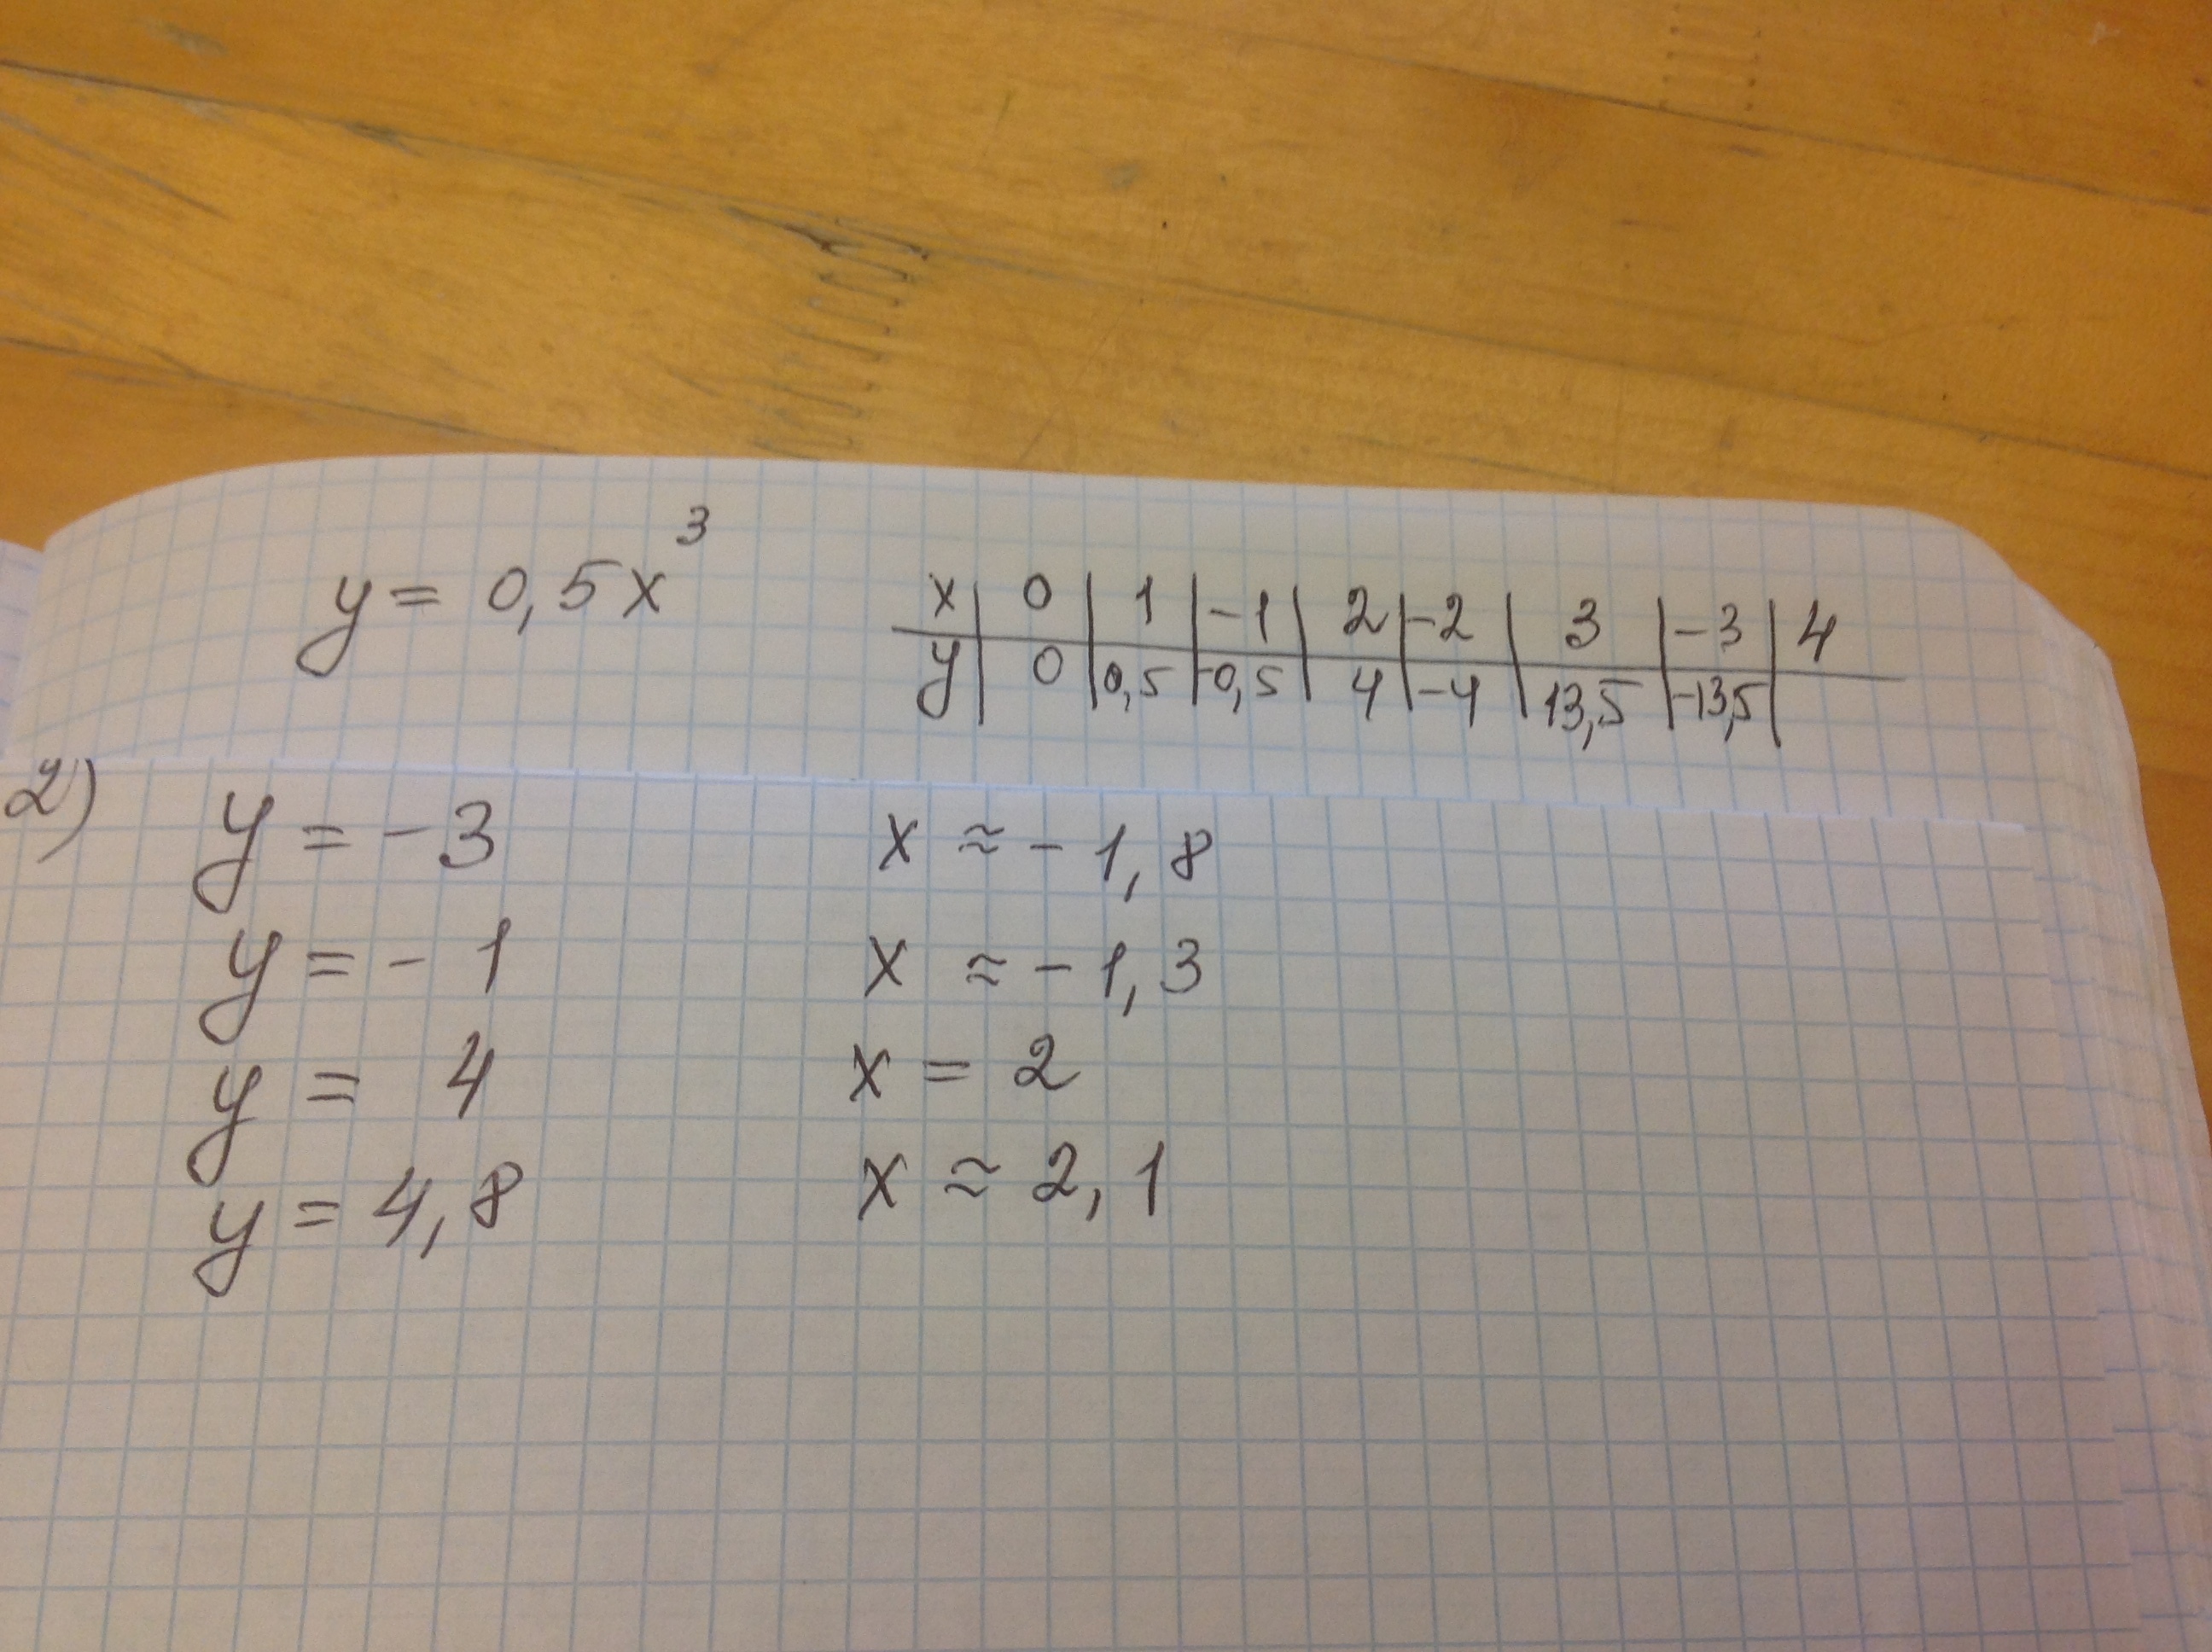 y = 0,5x³
x | 0 | 1 | -1 | 2 | -2 | 3 | -3 | 4
y | 0 | 0,5 | -0,5 | 4 | -4 | 13,5 | -13,5 |
2) y = -3 x ≈ -1,8
y = -1 x ≈ -1,3
y = 4 x = 2
y = 4,8 x ≈ 2,1